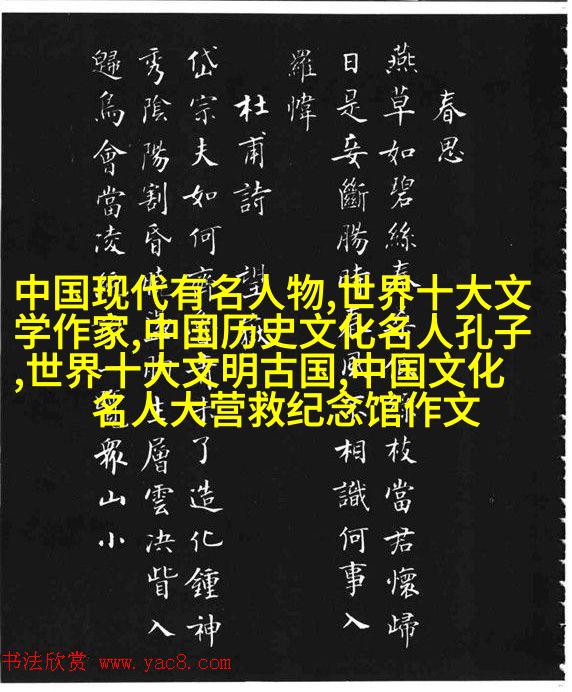 春思
燕草如碧絲枝當君懷歸
日是妾斷腸春風相識何事入
羅幃
杜甫詩 望
岱宗夫如何齊了造化鍾神
秀陰陽割昏生層雲決眥入
歸鳥會當凌一眾山小
中国现代有名人物,世界十大文
学作家,中国历史文化名人孔子
,世界十大文明古国,中国文化
名人大营救纪念馆作文
书法欣赏 www.yac8.com